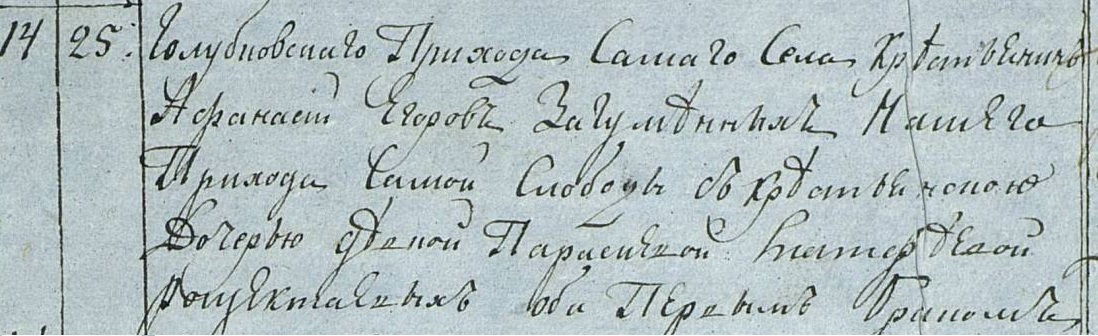 14 25. Голубковскаго Прихода Самаго Села Крѣстьянинъ
Афанасій Егоровъ Загумѣнныхъ Нашего
Прихода Самой Слободы съ крѣстьянскою
Дочерью дѣвкой Параскевой
оба Первымъ бракомъ